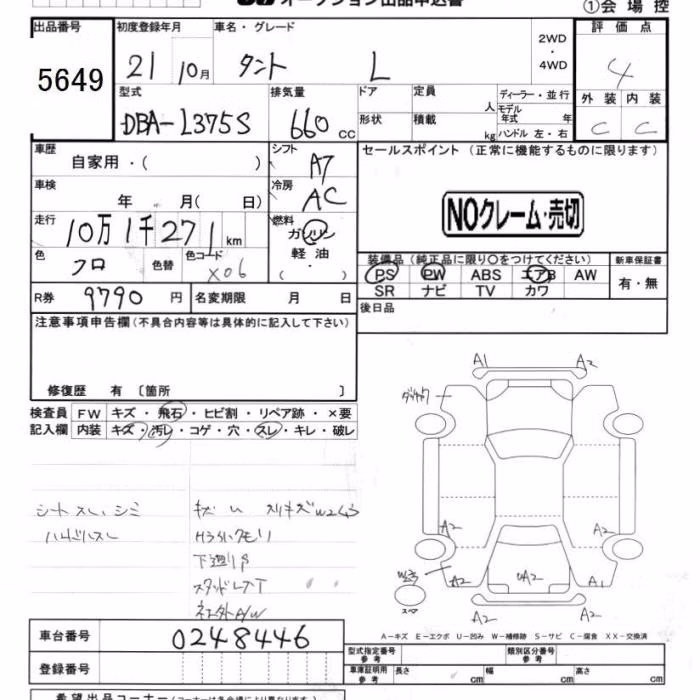 オークション出品申込書
①会場控
出品番号
5649
初度登録年月
21 10月
車名・グレード
タント L
2WD
・
4WD
評価点
4
外装 内装
C C
型式
DBA-L375S
排気量
660 CC
ドア
形状
定員
人
積載
kg
ディーラー・並行
モデル年式 年
ハンドル 左・右
車歴
自家用・( )
シフト
A7
車検
年 月( 日)
冷房
AC
走行
10万1千271 km
燃料
ガソリン
軽油
・
( )
色
クロ
色替
色コード
X06
R券 9790 円
名変期限 月 日
セールスポイント (正常に機能するものに限ります)
NOクレーム・売切
装備品(純正品に限り〇をつけてください)
PS PW ABS エアB AW
SR ナビ TV カワ
新車保証書
有・無
後日品
注意事項申告欄(不具合内容等は具体的に記入して下さい)
修復歴 有〔箇所 〕
検査員 FW キズ・飛石・ヒビ割・リペア跡・×要
記入欄 内装 キズ・汚レ・コゲ・穴・スレ・キレ・破レ
シートスレ、シミ
ハンドルスレ
下廻りP
A1 A2
A2 A2
A2 UA2 A1
スペア
A2 A2
A-キズ E-エクボ U-凹み W-補修跡 S-サビ C-腐食 XX-交換済
車台番号 0248446
登録番号
型式指定番号
参考
類別区分番号
参考
車庫証明用
参考
長さ cm 幅 cm 高さ cm
希望出品コーナー